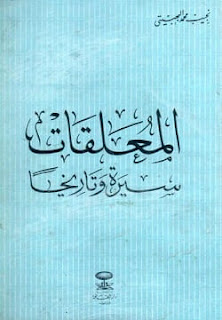 نجيب محمد البهبيتي
المعلقات
سيرة وتاريخًا